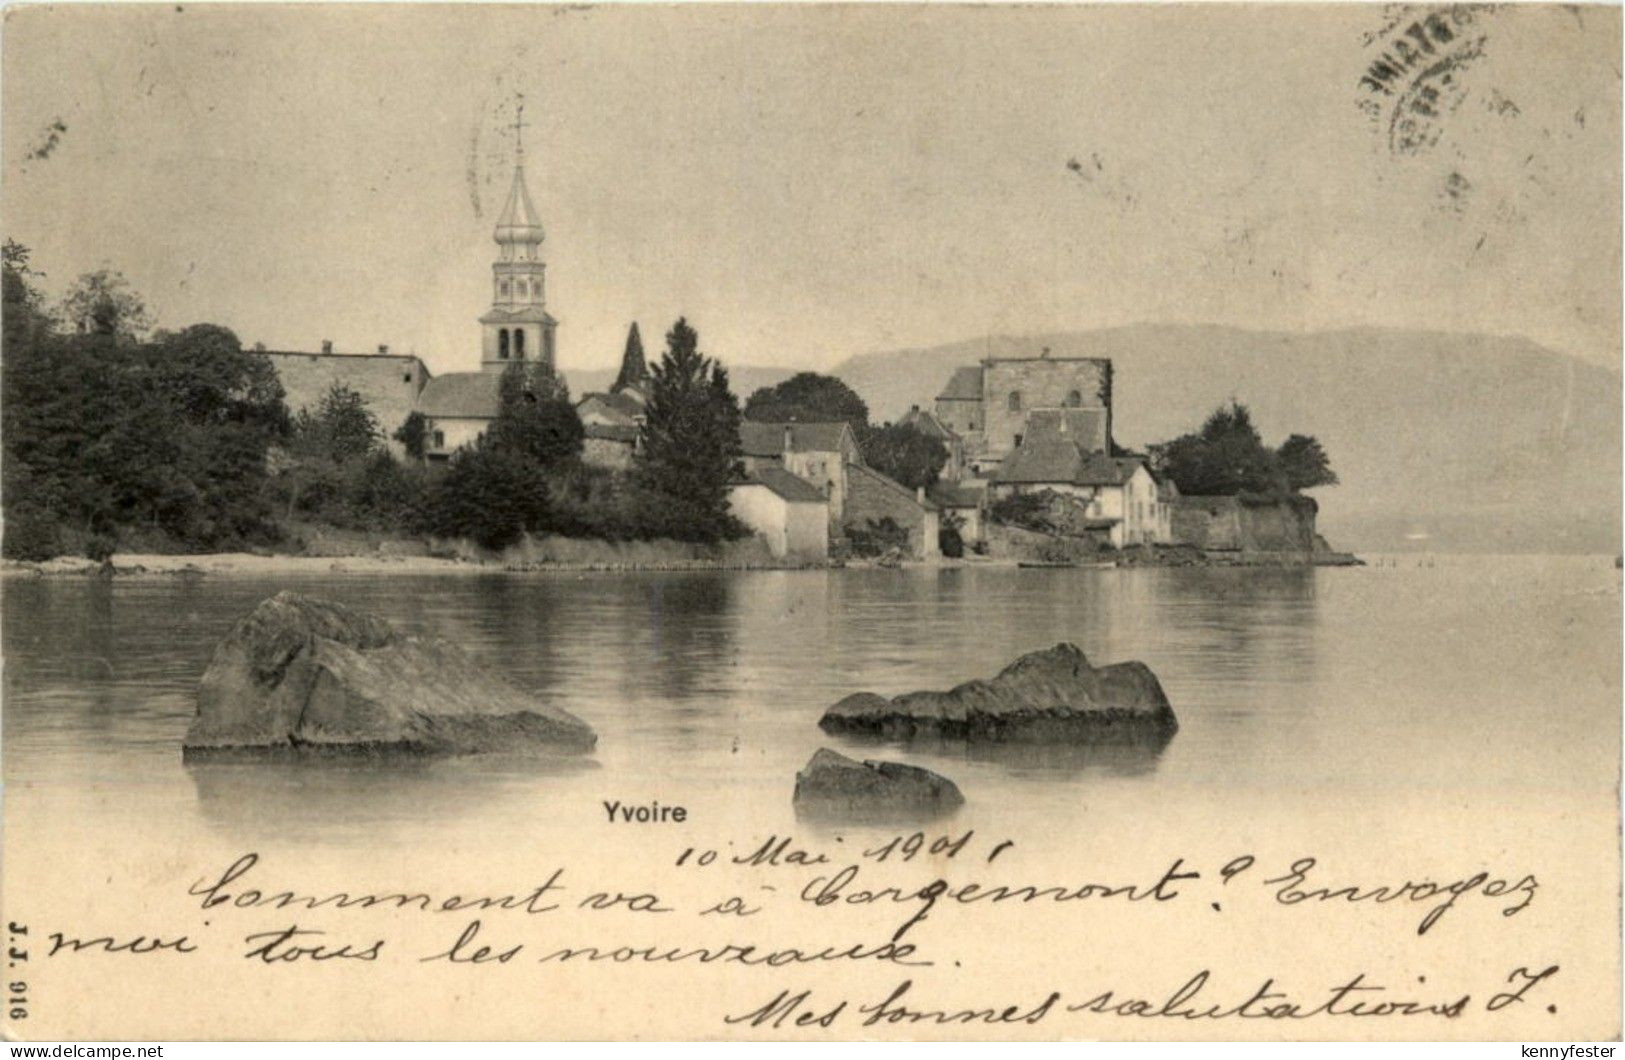 Yvoire
10 Mai 1901,
Comment va à Corgemont? Envoyez
moi tous les nouveaux.
Mes bonnes salutations J.
J.J. 916
www.delcampe.net
kennyfester